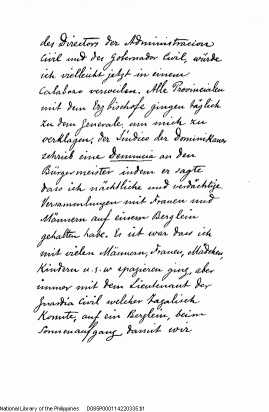 des Directors der Administracion
Civil und des Gobernador Civil, würde
ich vielleicht jetzt in einem
Calaboso verweilen. Alle Provincialen
mit dem Erzbischofe gingen täglich
zu dem Generale, um mich zu
verklagen; der Sindics der Dominikaner
schrieb eine Denuncia an den
Bürgermeister indem er sagte
dass ich nächtliche und verdächtige
Versammlungen mit Frauen und
Männern auf einem Berglein
gehalten habe. Es ist war dass ich
mit vielen Männern, Frauen, Mädchen,
Kindern u. s. w spazieren ging, aber
immer mit dem Lieutenant der
Guardia Civil welcher Tagalisch
konnte, auf ein Berglein, beim
Sonnenaufgang damit wir
National Library of the Philippines D085R00011422033551